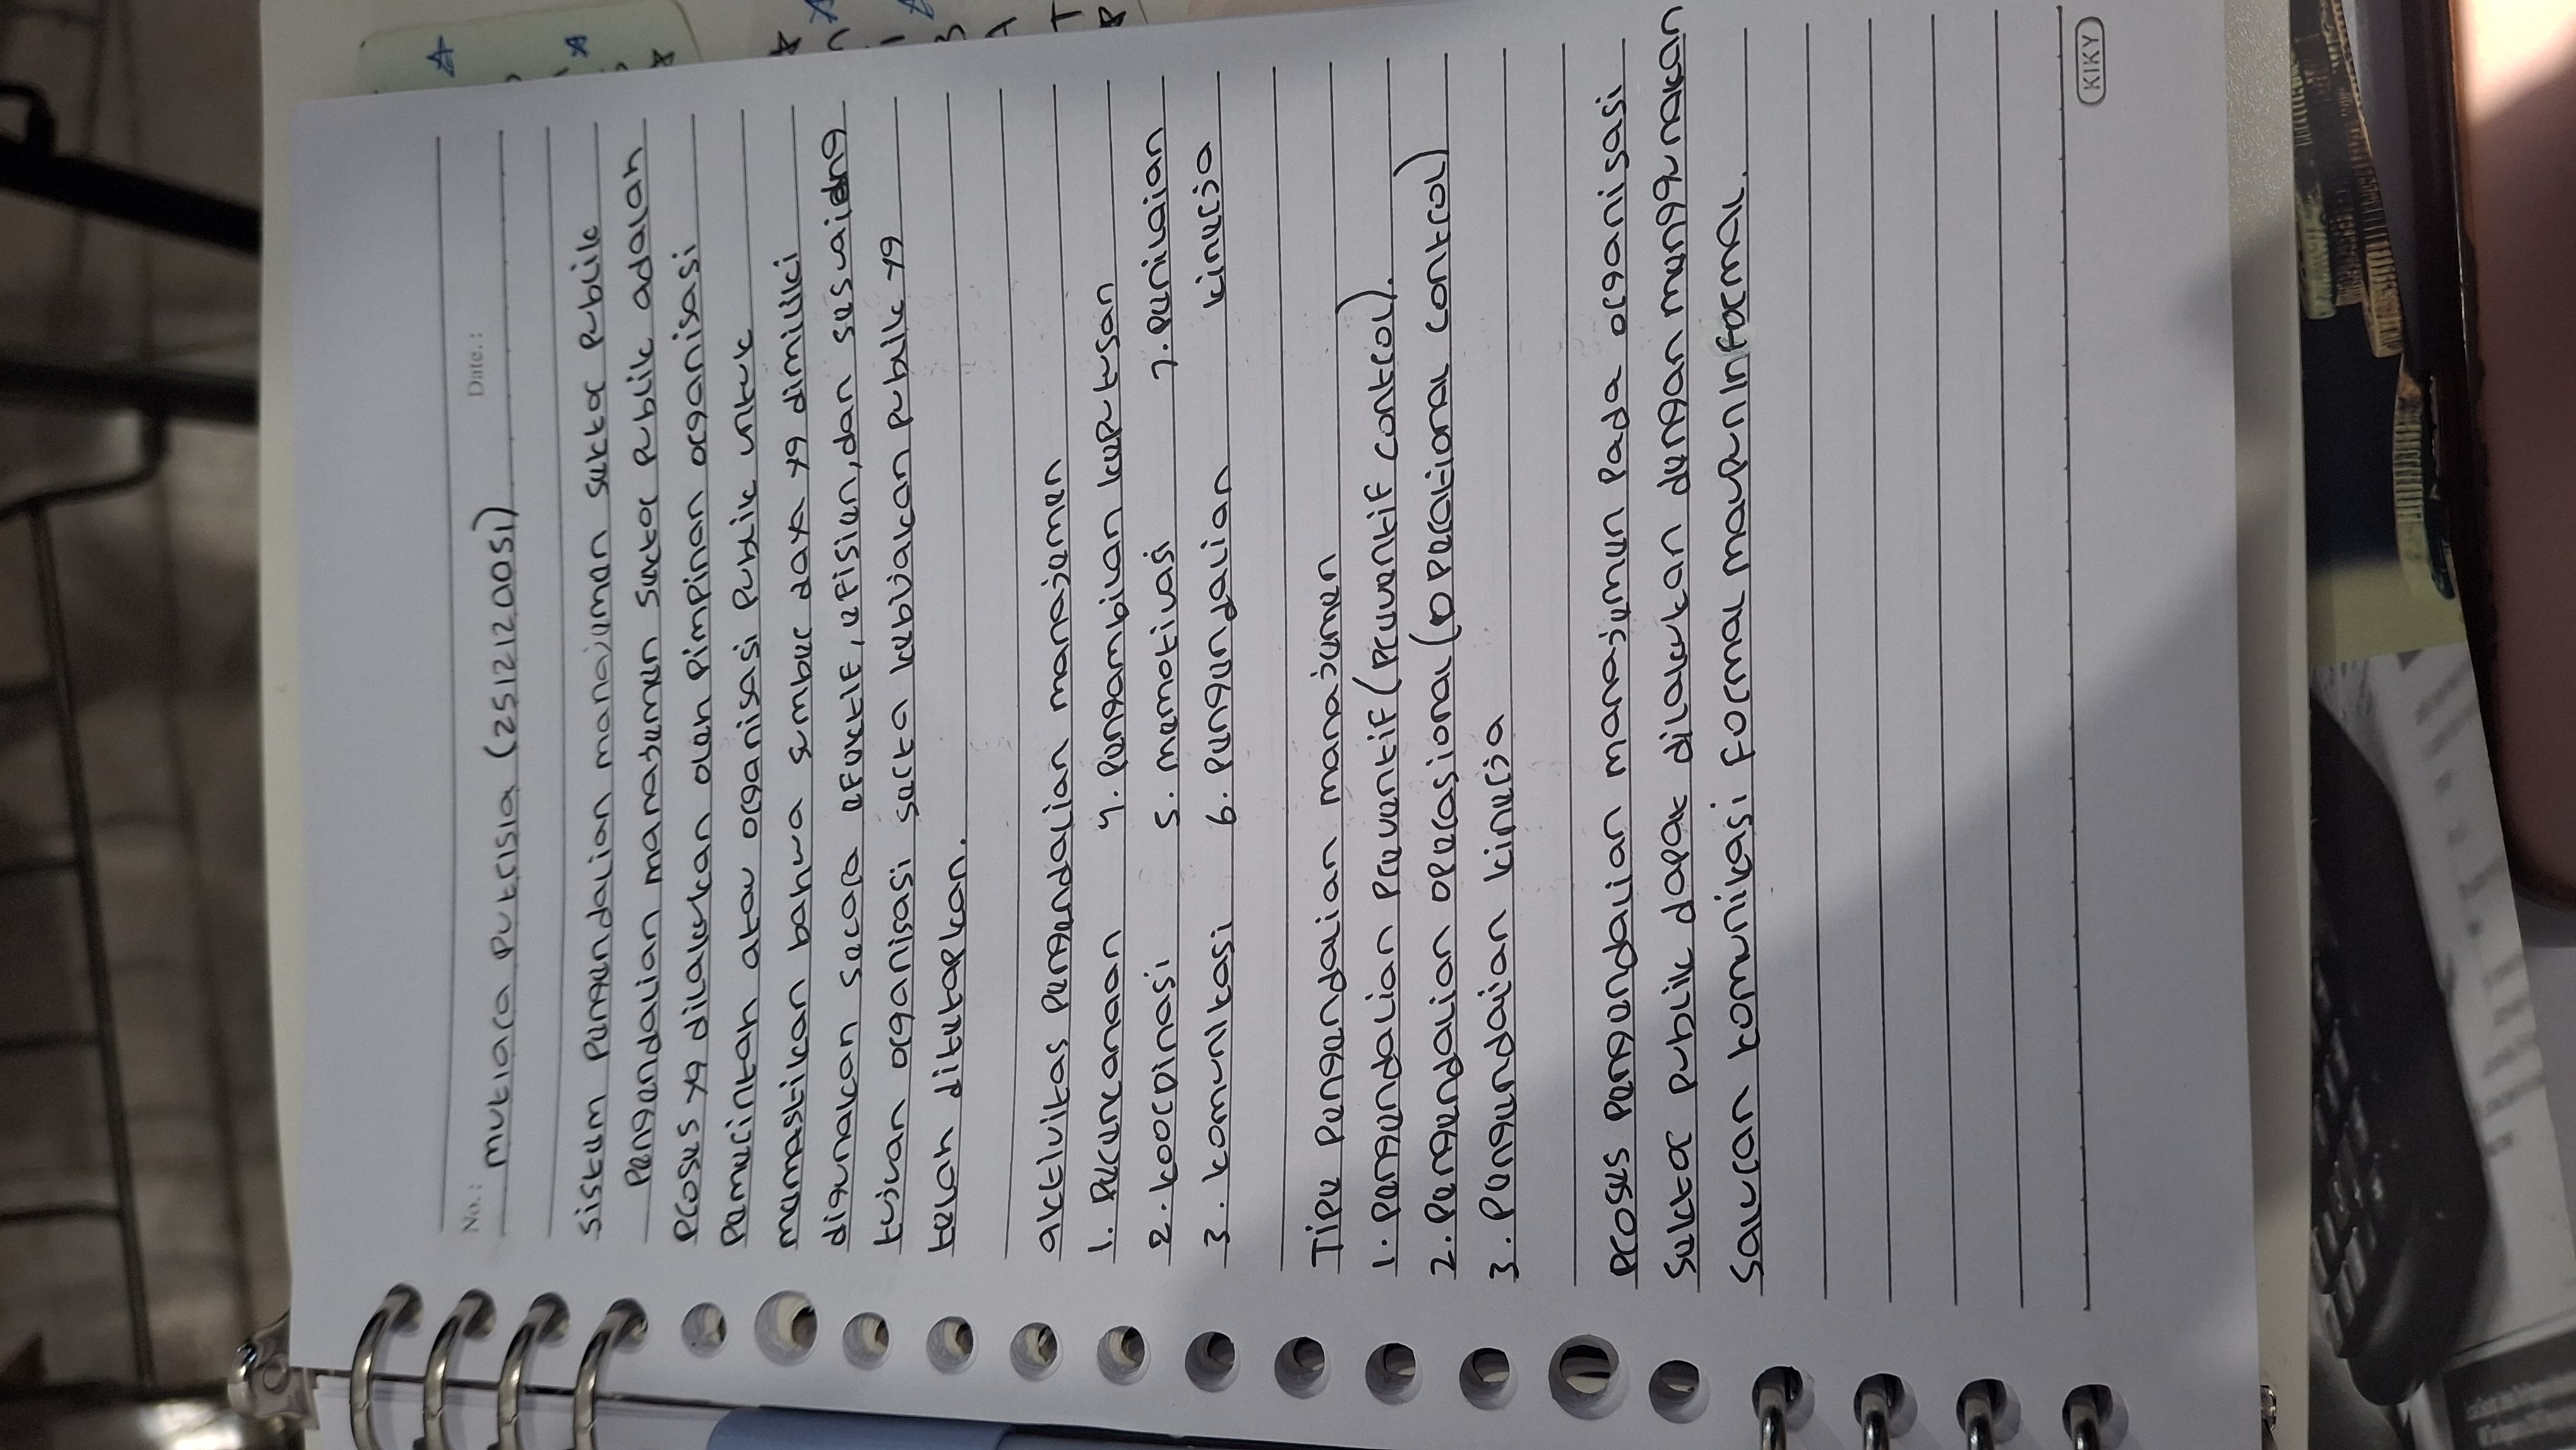 No.: Date.:
Mutiara Putrisia (2512120051)
Sistem Pengendalian manajemen sektor publik
Pengendalian manajemen sektor publik adalah
Proses yg dilakukan oleh pimpinan organisasi
Pemerintah atau organisasi publik untuk
memastikan bahwa sumber daya yg dimiliki
digunakan secara efektif, efisien, dan sesuai dng
tujuan organisasi serta kebijakan publik yg
telah ditetapkan.
aktivitas Pengendalian manajemen
1. Perencanaan 4. Pengambilan keputusan
2. koordinasi 5. memotivasi 7. Penilaian
3. komunikasi 6. Pengendalian kinerja
Tipe Pengendalian manajemen
1. Pengendalian Preventif (Preventif control).
2. Pengendalian operasional (operational control)
3. Pengendaian kinerja
Proses Pengendalian manajemen Pada organisasi
sektor publik dapat dilakukan dengan menggunakan
Saluran komunikasi formal maupun informal.
KIKY